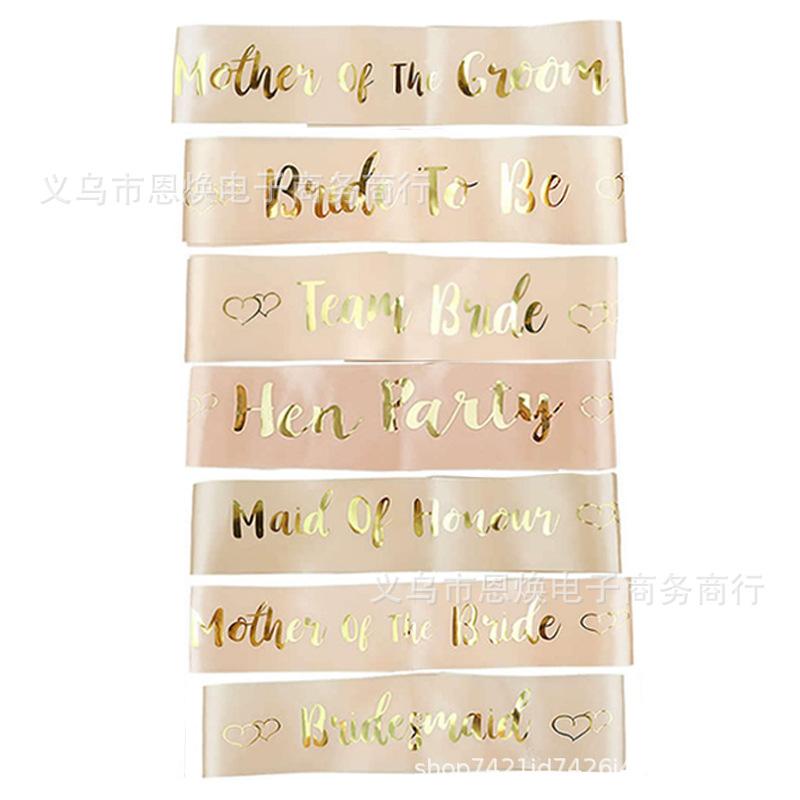 Mother Of The Groom
义乌市恩焕电子商务商行
Bride To Be
Team Bride
Hen Party
Maid Of Honour
义乌市恩焕电子商务商行
Mother Of The Bride
Bridesmaid